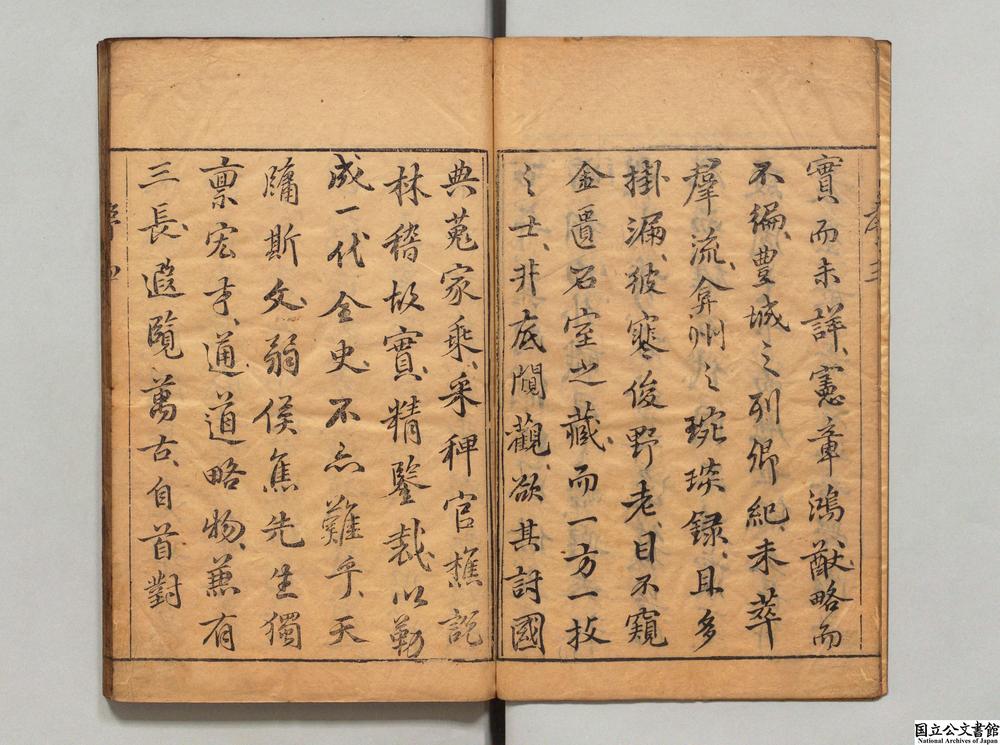 實而未詳、憲章鴻猷略而
不徧、豐城之列卿紀、未萃
羣流、弇州之琬琰録、且多
掛漏、彼寒俊野老、目不窺
金匱石室之藏、而一方一技
之士、非底閒觀、欲其討國
典、蒐家乘、采稗官樵說
林、稽故實、精鑒裁、以勒
成一代全史、不亦難乎、天
牖斯文、弱侯焦先生獨
禀宏才、通道略物、兼有
三長、遐覽萬古、自首對
序三
序四
国立公文書館
National Archives of Japan